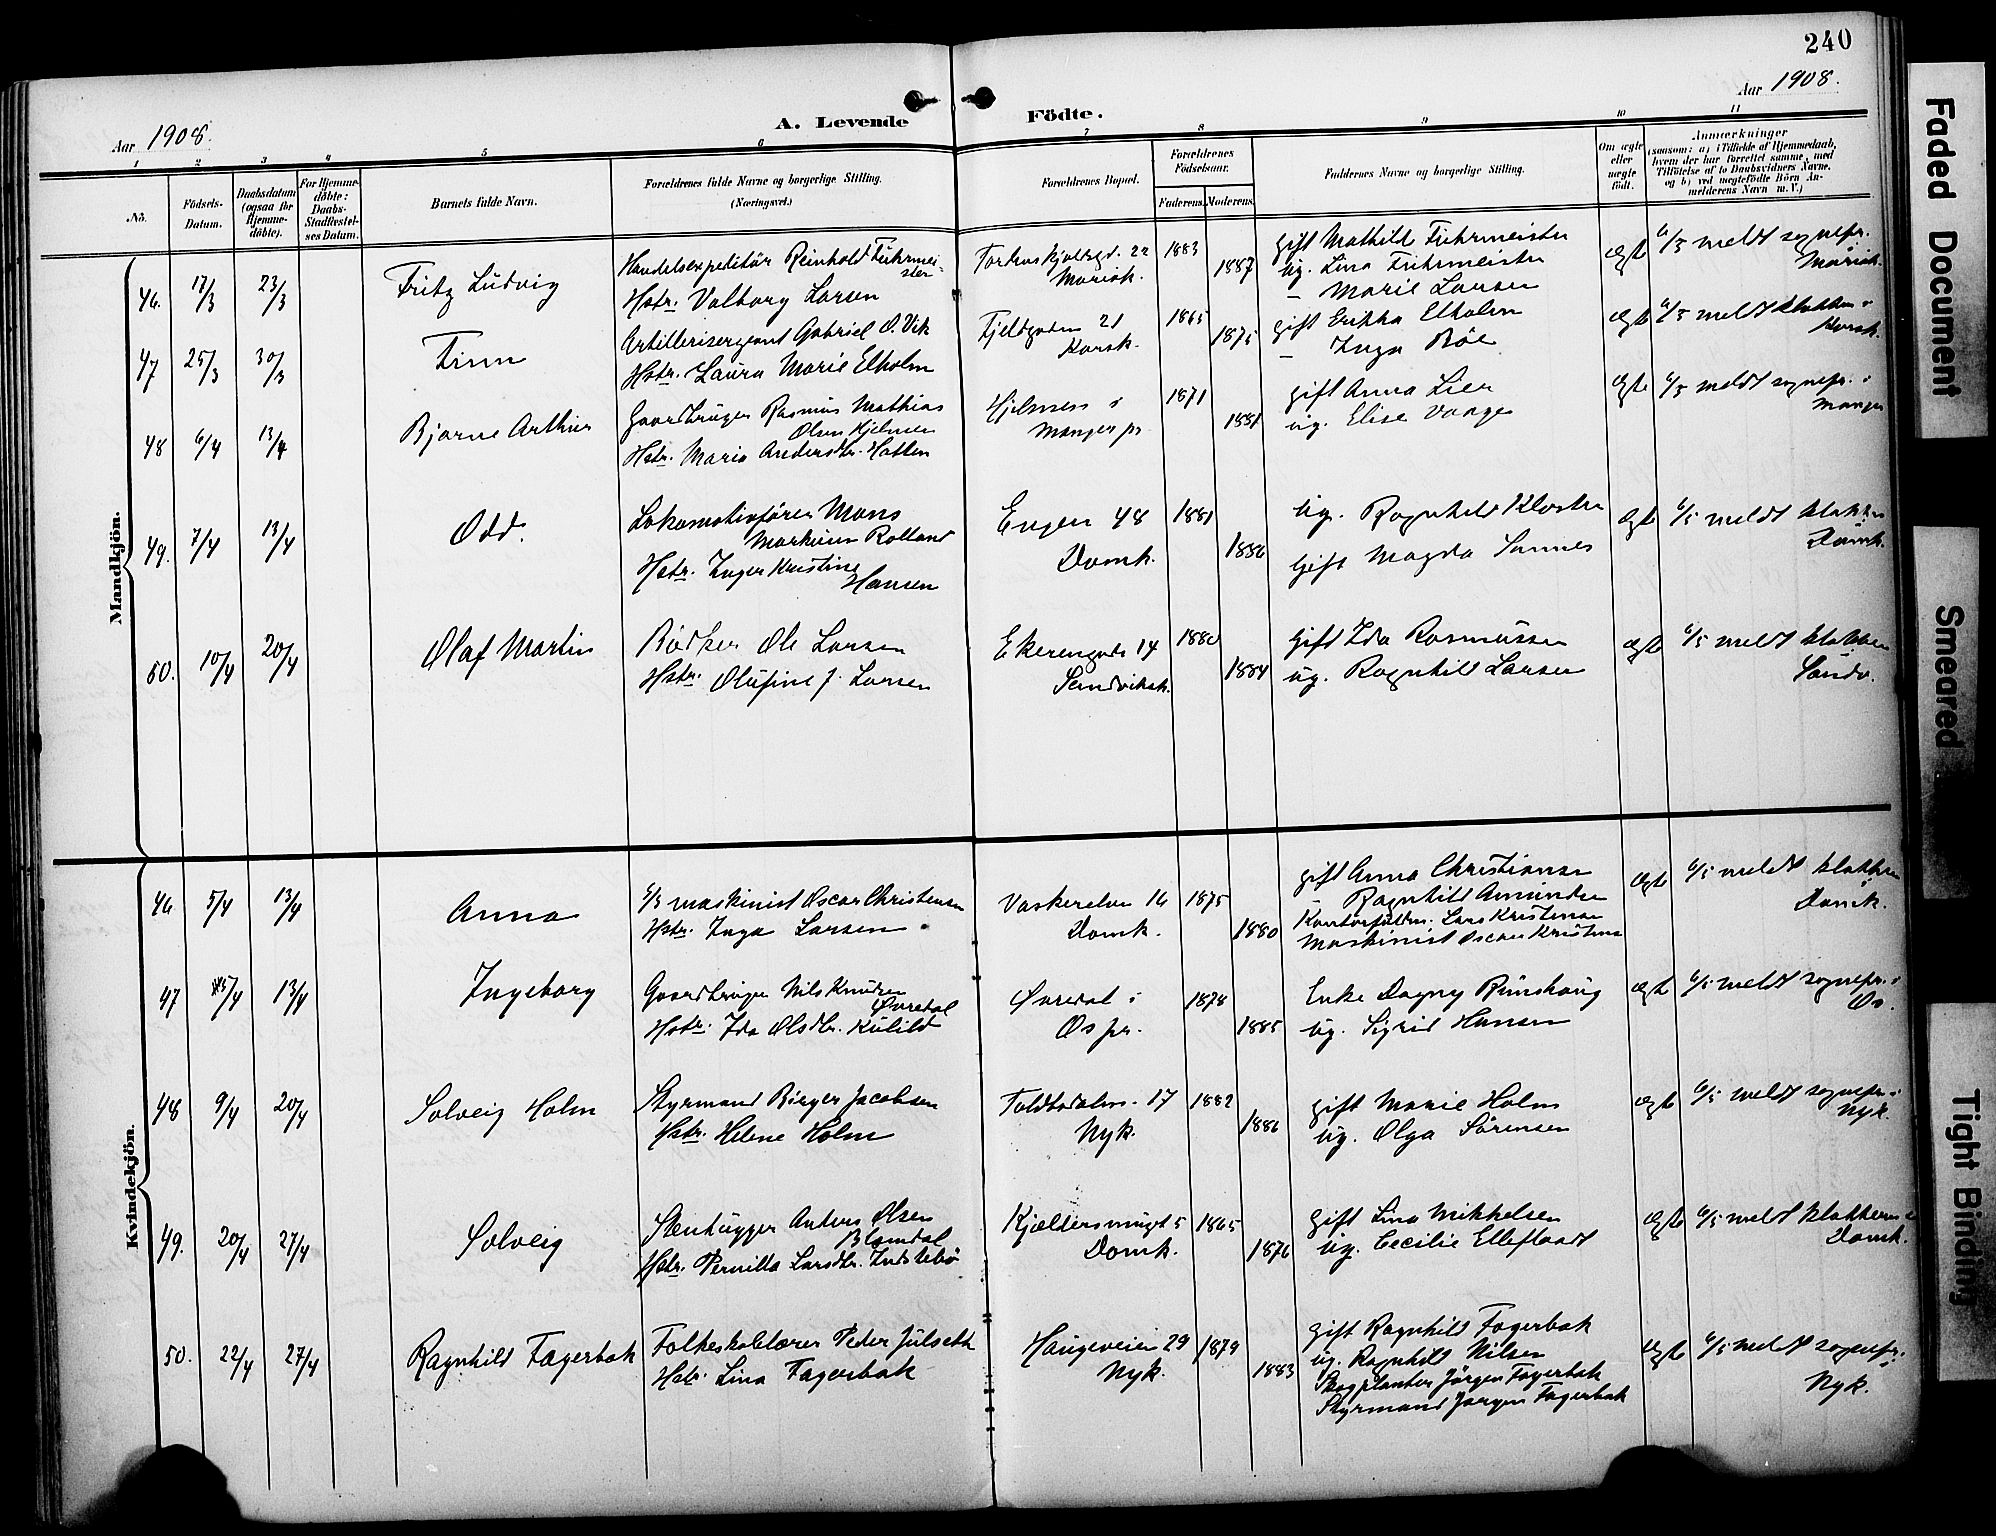 240
Aar 1908.
Aar 1908.
A. Levende Födte.
1 2 3 4 5 6 7 8 9 10 11
No.
Födsels-
Datum.
Daabsdatum
(ogsaa for
Hjemme-
döbte).
For Hjemme-
döbte:
Daabs-
Stadfæstel-
ses Datum.
Barnets fulde Navn.
Forældrenes fulde Navne og borgerlige Stilling.
(Næringsvei.)
Forældrenes Bopæl.
Forældrenes
Födselsaar.
Faderens.
Moderens.
Faddernes Navne og borgerlige Stilling.
Om ægte
eller
uægte
födt.
Anmærkninger
(saasom: a) i Tilfælde af Hjemmedaab,
hvem der har forrettet samme, med
Tilföielse af to Daabsvidners Navne,
og b) ved uægtefödte Börn An-
melderens Navn m. V.)
Mandkjön.
46. 17/3 23/3 Fritz Ludvig
Handelsexpeditör Reinhold Fuhrmei-
ster
Hstr. Valborg Larsen
Tordenskjoldsgd. 22
Mariak.
1883 1887
gift Mathilde Fuhrmeister
ug. Lina Fuhrmeister
– Marie Larsen
ægte
6/5 meldt sognepr.
Mariak.
47 25/3 30/3 Finn
Artillerisergeant Gabriel O. Vik
Hstr. Laura Marie Elholm
Fjeldgaden 21
Korsk.
1865 1875
gift Erikka Elholm
– Inga Böe
ægte
6/5 meldt klokken i
Korsk.
48 6/4 13/4 Bjarne Arthur
Gaardbruger Rasmus Mathias
Olsen Hjelmen
Hstr. Maria Andersdtr. Hatten
Hjelmen i
Manger pr.
1871 1881
gift Anna Lier
ug. Elise Vaage
ægte
6/5 meldt sognepr. i
Manger
49. 7/4 13/4 Odd.
Lokomotivförer Mons
Markusen Rolland
Hstr. Inger Kristine
Hansen
Engen 48
Domk.
1881 1886
ug. Ragnhild Kloster
gift Magda Sannes
ægte
6/5 meldt klokken
Domk.
50. 10/4 20/4 Olaf Martin
Bödker Ole Larsen
Hstr. Olufine J. Larsen
Ekerengade 14
Sandviksk.
1880 1884
gift Ida Rasmussen
ug. Ragnhild Larsen
ægte
6/5 meldt klokken
Sandv.
Kvindekjön.
46 5/4 13/4 Anna
maskinist Oscar Christensen
Hstr. Inga Larsen
Vaskerelven 16
Domk.
1875 1880
gift Anna Christiansen
Ragnhild Amundsen
Lars Kristensen
Maskinist Oscar Kristensen
ægte
6/5 meldt klokken
Domk.
47 5/4 13/4 Ingeborg
Gaardbruger Nils Knudsen
Øvredal
Hstr. Ida Olsdtr. Kulild
Øvredal i
Os pr.
1878 1885
Enke Dagny Runshaug
ug. Sigrid Hansen
ægte
6/5 meldt sognepr. i
Os.
48 9/4 20/4 Solveig Holm
Styrmand Birger Jacobsen
Hstr. Helene Holm
Toldbodalm. 17
Nyk.
1882 1886
gift Marie Holm
ug. Olga Sörensen
ægte
6/5 meldt sognepr. i
Nyk.
49. 20/4 27/4 Solveig
Stenhugger Anders Olsen
Blomdal
Hstr. Pernilla Larsdtr. Indrebö
Kjældersmuget 5
Domk.
1865 1876
gift Lina Mikkelsen
ug. Cecilie Elleflaadt
ægte
6/5 meldt klokkeren i
Domk.
50. 22/4 27/4 Ragnhild Fagerbak
Folkeskolelærer Peder Julseth
Hstr. Lina Fagerbak
Haugeveien 29
Nyk.
1879 1883
gift Ragnhild Fagerbak
ug. Ragnhild Nilsen
Skogplanter Jörgen Fagerbak
Styrmand Jörgen Fagerbak
ægte
6/5 meldt sognepr. i
Nyk.
Faded Document
Smeared
Tight Binding